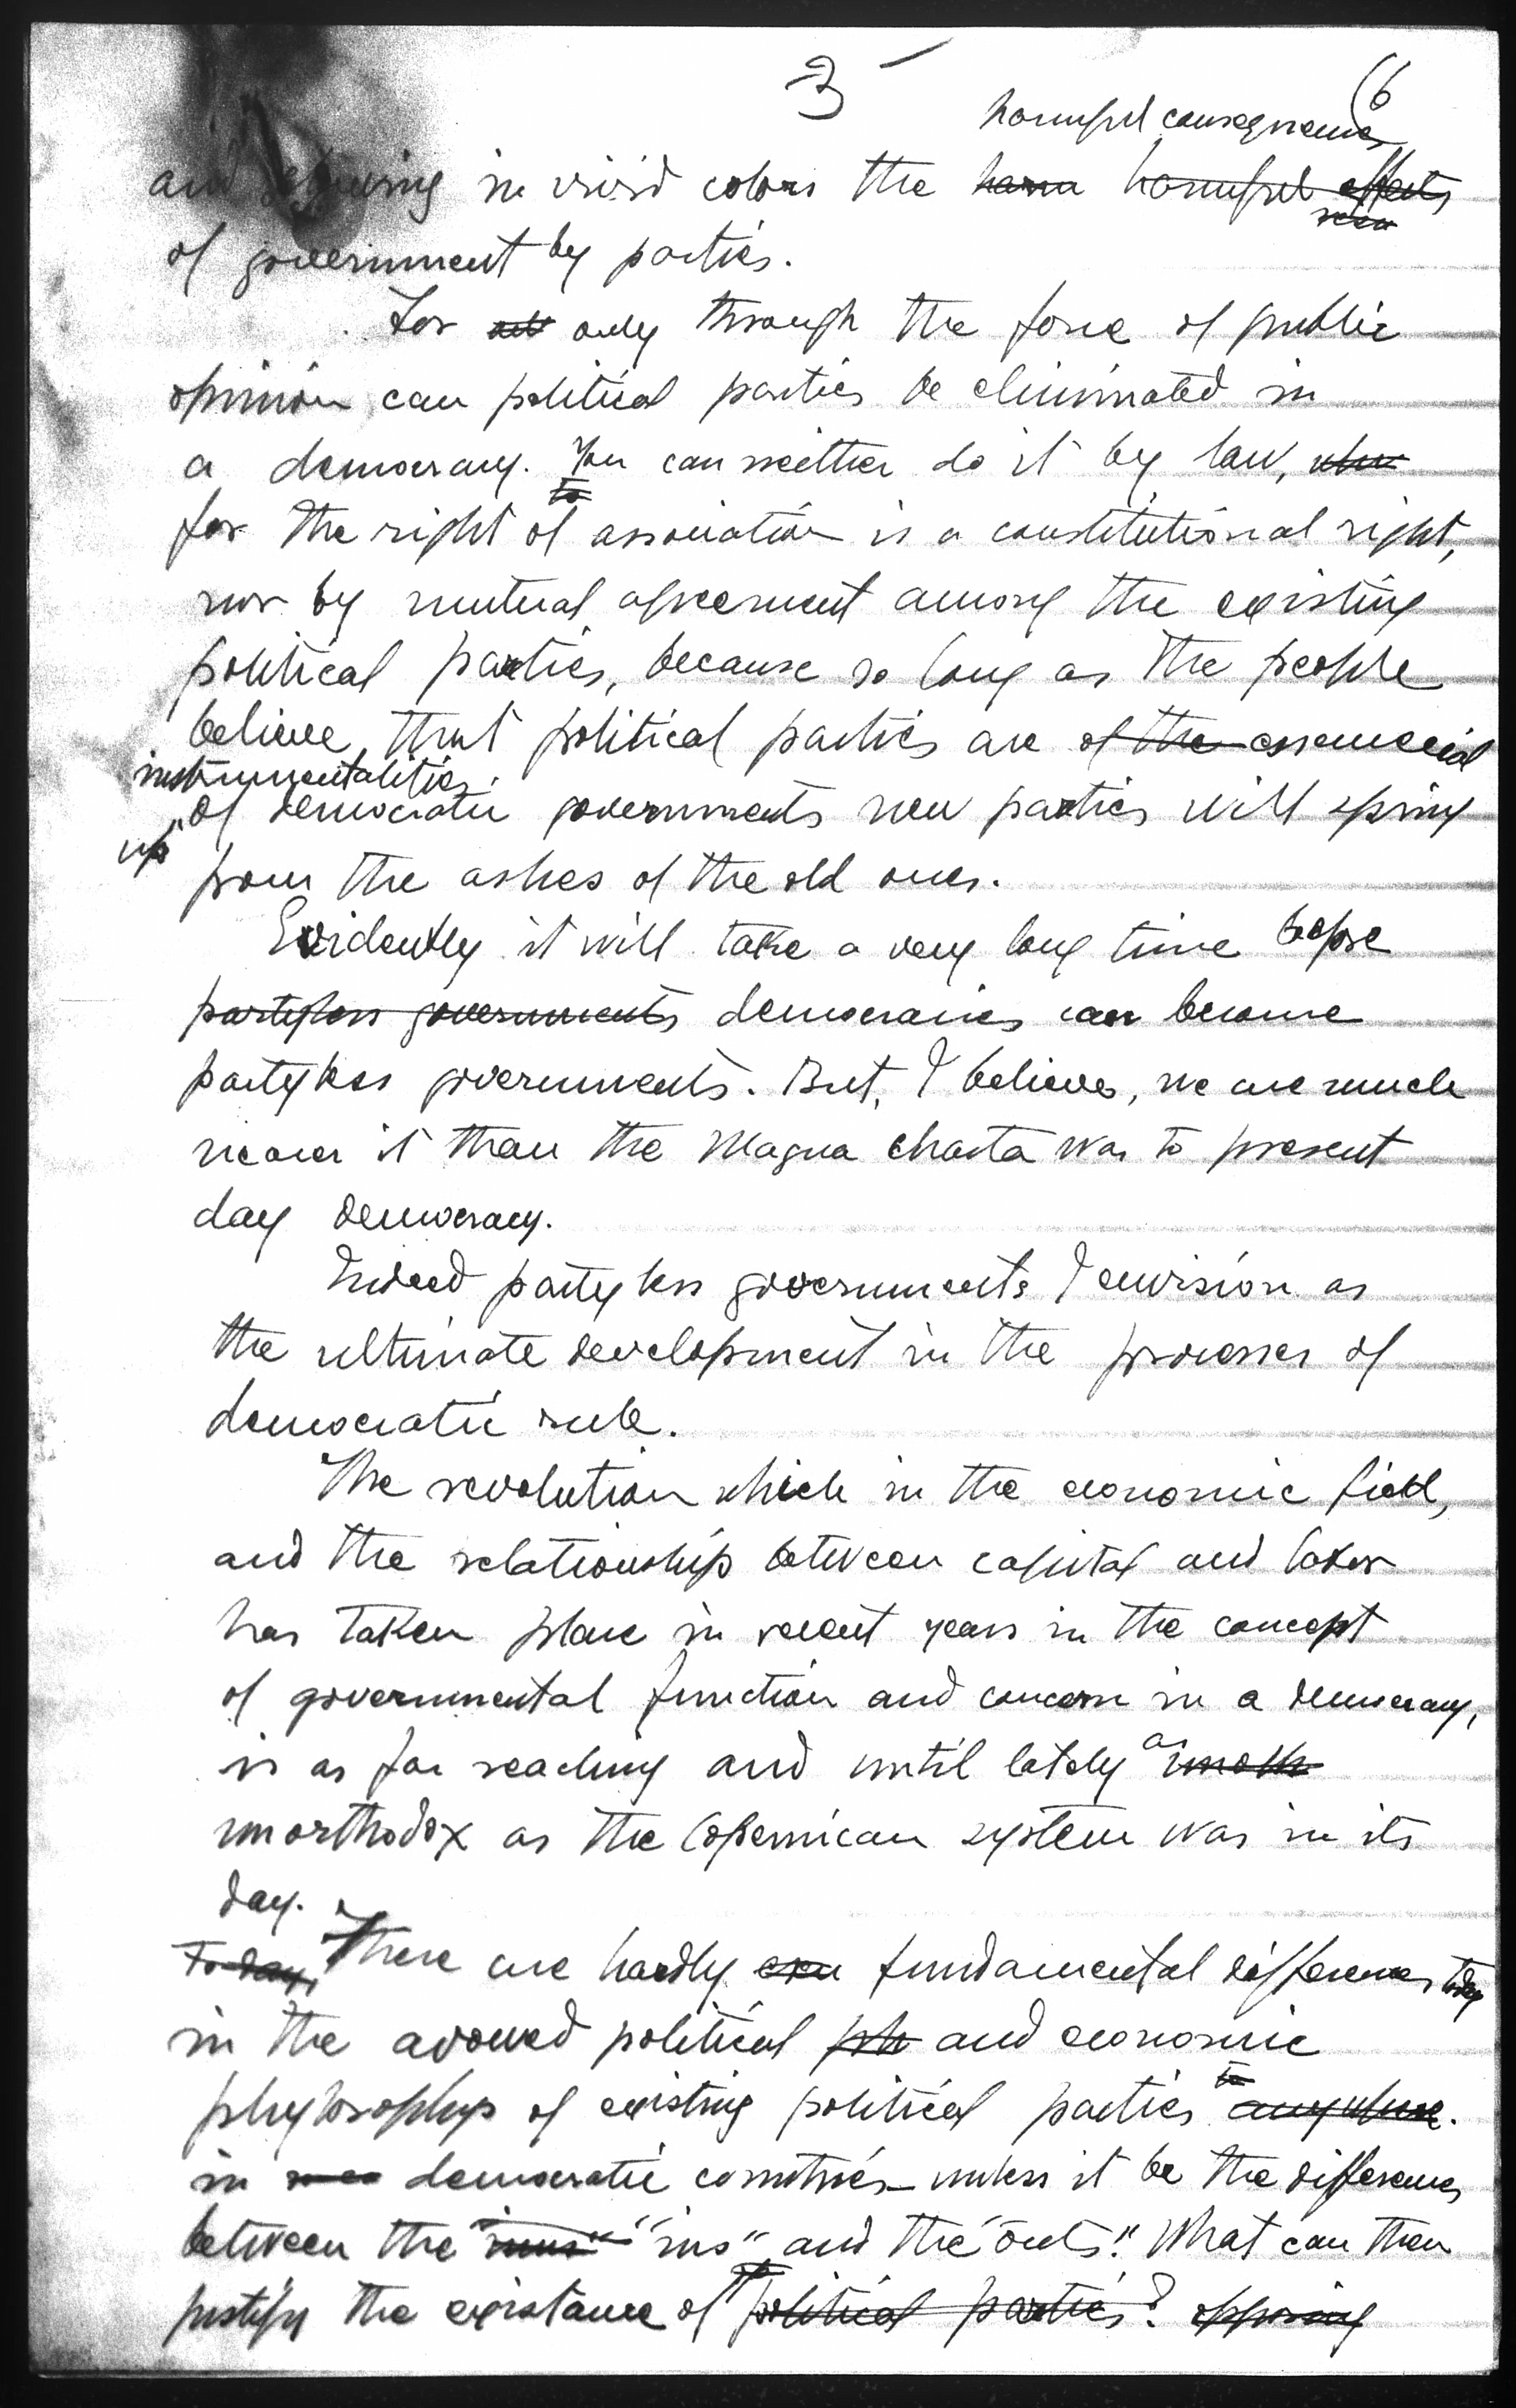 3
6
harmful consequences
and showing in vivid colors the harm harmful effects
of government by parties.
For only through the force of public
opinion can political parties be eliminated in
a democracy. You can neither do it by law,
to
for the right of association is a constitutional right,
nor by mutual agreement among the existing
political parties, because so long as the people
believe that political parties are of the essencial
instrumentalities
of democratic governments new parties will spring
up
from the ashes of the old ones.
Evidently it will take a very long time before
partyless governments democracies can become
partyless governments. But, I believe, we are much
nearer it than the Magna Charta was to present
day democracy.
Indeed partyless governments I envision as
the ultimate development in the processes of
democratic rule.
The revolution which in the economic field,
and the relationship between capital and labor
has taken place in recent years in the concept
of governmental function and concern in a democracy,
is as far reaching and until lately as unorth
unorthodox as the Copernican system was in its
day.
To-day, There are hardly fundamental differences today
in the avowed political ph and economic
phylosophys of existing political parties anywhere.
in democratic countries unless it be the differences
between the "ins" and the "outs". What can then
justify the existance of political parties? opposing